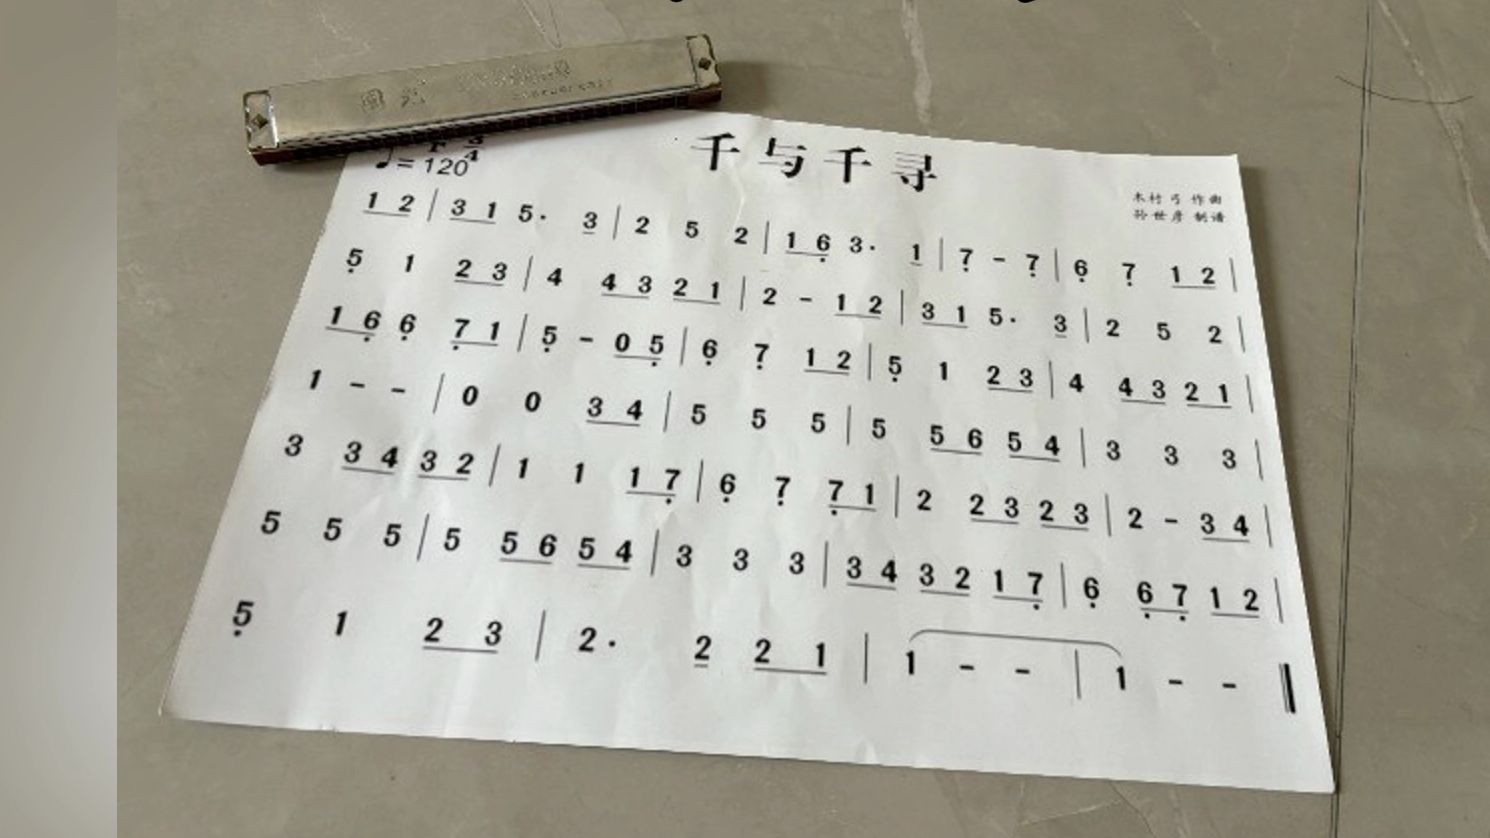 国光
千与千寻
♩= 120
3
4
木村弓 作曲
孙世彦 制谱
1 2 | 3 1 5· 3 | 2 5 2 | 1 6̣ 3· 1 | 7̣ - 7̣ | 6̣ 7̣ 1 2 |
5̣ 1 2 3 | 4 4 3 2 1 | 2 - 1 2 | 3 1 5· 3 | 2 5 2 |
1 6̣ 6̣ 7̣ 1 | 5̣ - 0 5̣ | 6̣ 7̣ 1 2 | 5̣ 1 2 3 | 4 4 3 2 1 |
1 - - | 0 0 3 4 | 5 5 5 | 5 5 6 5 4 | 3 3 3 |
3 3 4 3 2 | 1 1 1 7̣ | 6̣ 7̣ 7̣ 1 | 2 2 3 2 3 | 2 - 3 4 |
5 5 5 | 5 5 6 5 4 | 3 3 3 | 3 4 3 2 1 7̣ | 6̣ 6̣ 7̣ 1 2 |
5̣ 1 2 3 | 2· 2 2 1 | 1 - - | 1 - - ‖